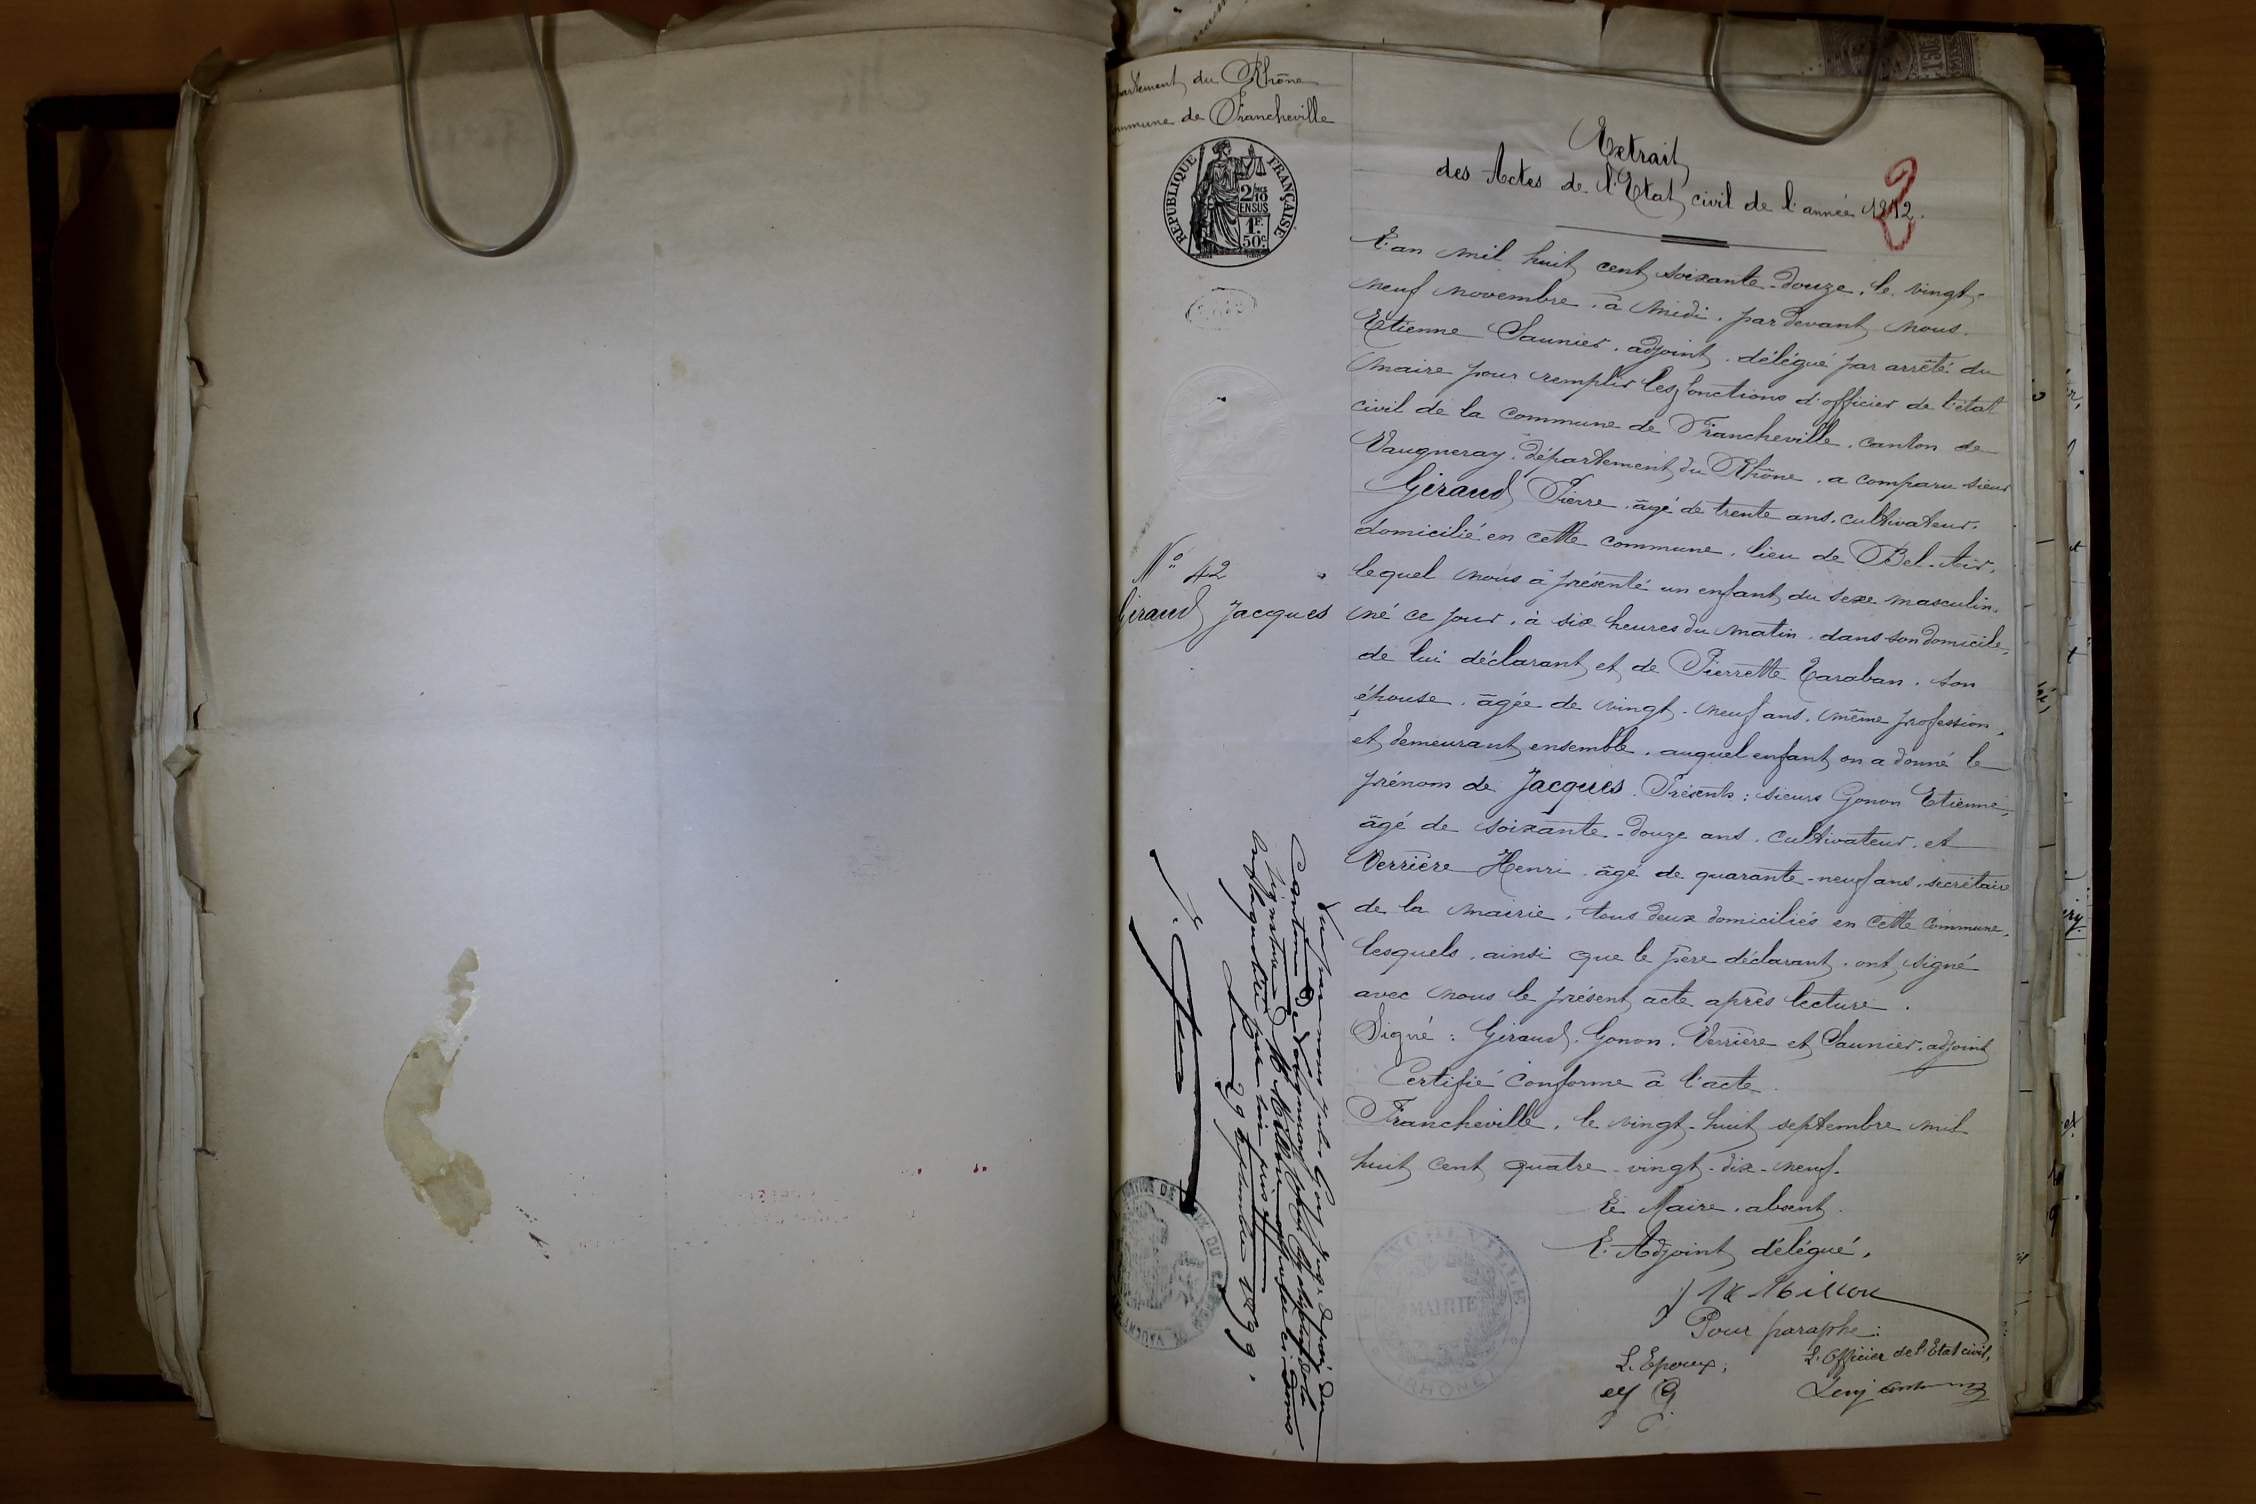 Département du Rhône
Commune de Francheville
RÉPUBLIQUE FRANÇAISE
2/10
EN SUS
1F.
50c.
Extrait
des Actes de l'Etat civil de l'année 1872.
L'an mil huit cent soixante-douze, le vingt-
neuf novembre, à midi, par devant nous
Etienne Saunier, adjoint, délégué par arrêté du
Maire pour remplir les fonctions d'officier de l'état
civil de la commune de Francheville, canton de
Vaugneray, département du Rhône, a comparu sieur
Giraud Pierre, âgé de trente ans, cultivateur,
domicilié en cette commune, lieu de Bel-Air,
lequel nous a présenté un enfant du sexe masculin,
né ce jour, à six heures du matin, dans son domicile,
de lui déclarant et de Pierrette Taraban, son
épouse, âgée de vingt-neuf ans, même profession,
et demeurant ensemble, auquel enfant on a donné le
prénom de Jacques. Présents : sieurs Gonon Etienne,
âgé de soixante-douze ans, cultivateur, et
Verrière Henri, âgé de quarante-neuf ans, secrétaire
de la mairie, tous deux domiciliés en cette commune,
lesquels, ainsi que le père déclarant, ont signé
avec nous le présent acte après lecture.
Signé : Giraud, Gonon, Verrière et Saunier, adjoint
Certifié conforme à l'acte.
Francheville, le vingt-huit septembre mil
huit cent quatre-vingt-dix-neuf.
Le Maire, absent.
L'Adjoint délégué,
Millou
Pour paraphe :
L'Epoux,
L'Officier de l'Etat civil,
G
N° 42
Giraud Jacques
Vu par nous juge de paix du
Canton de Vaugneray
signature de M Millou
apposée ci-contre
29 septembre 1899.
MAIRIE
RHÔNE